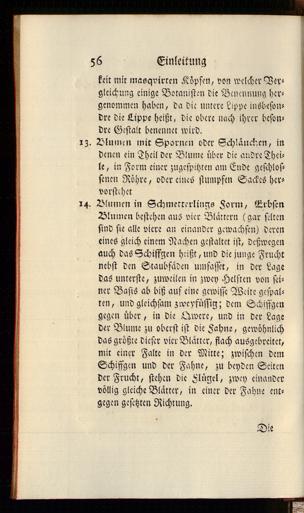 56 Einleitung
keit mit masqvirten Köpfen, von welcher Ver-
gleichung einige Botanisten die Benennung her-
genommen haben, da die untere Lippe insbeson-
dre die Lippe heißt, die obere nach ihrer beson-
dre Gestalt benennet wird.
13. Blumen mit Spornen oder Schläuchen, in
denen ein Theil der Blume über die andre Thei-
le, in Form einer zugespitzten am Ende geschlos-
senen Röhre, oder eines stumpfen Sackes her-
vorstehet
14. Blumen in Schmetterlings Form, Erbsen
Blumen bestehen aus vier Blättern (gar selten
sind sie alle viere an einander gewachsen) deren
eines gleich einem Nachen gestaltet ist, deßwegen
auch das Schiffgen heißt, und die junge Frucht
nebst den Staubfäden umfasset, in der Lage
das unterste, zuweilen in zwey Helften von sei-
ner Basis ab biß auf eine gewisse Weite gespal-
ten, und gleichsam zweyfüssig; dem Schiffgen
gegen über, in die Qvere, und in der Lage
der Blume zu oberst ist die Fahne, gewöhnlich
das größte dieser vier Blätter, flach ausgebreitet,
mit einer Falte in der Mitte; zwischen dem
Schiffgen und der Fahne, zu beyden Seiten
der Frucht, stehen die Flügel, zwey einander
völlig gleiche Blätter, in einer der Fahne ent-
gegen gesetzten Richtung.
Die